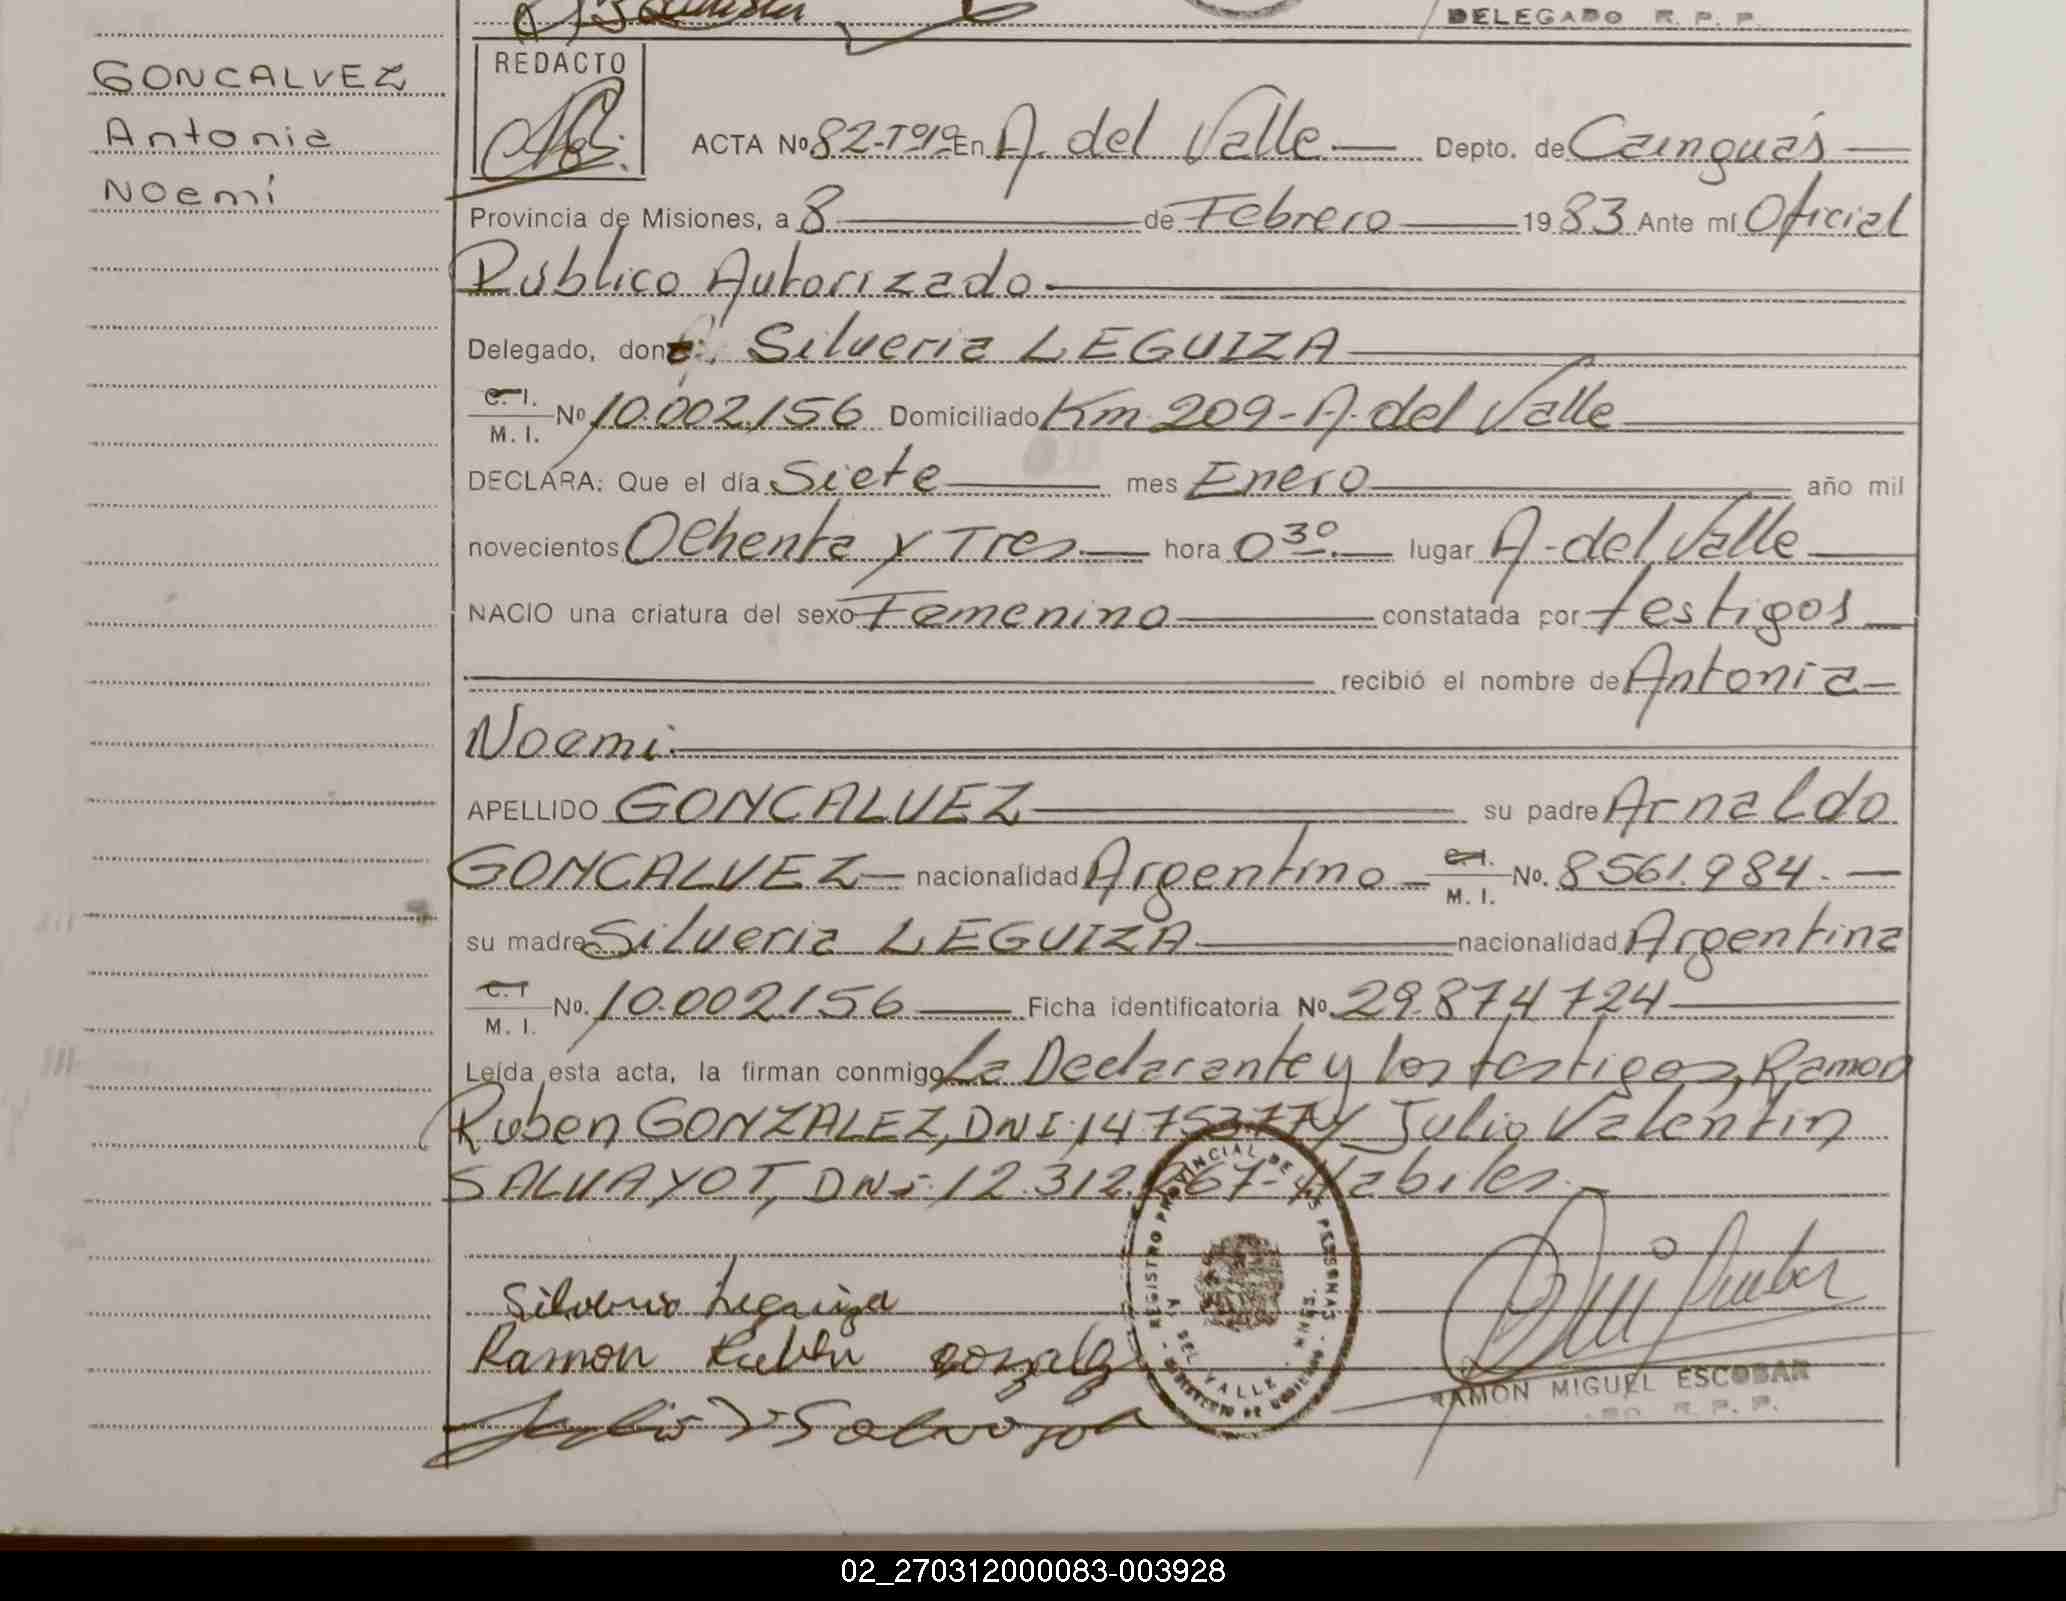 DELEGADO R. P. P.
GONCALVEZ
Antonia
Noemí
REDACTO
ACTA Nº 82-Tº1º En A. del Valle Depto. de Cainguás
Provincia de Misiones, a 8 de Febrero 1983 Ante mí Oficial
Público Autorizado
Delegado, don Silveria LEGUIZA
C. I.
M. I. Nº 10.002.156 Domiciliado Km 209 - A. del Valle
DECLARA: Que el día Siete mes Enero año mil
novecientos Ochenta y Tres hora 0 30 lugar A. del Valle
NACIO una criatura del sexo Femenino constatada por testigos
recibió el nombre de Antonia
Noemi
APELLIDO GONCALVEZ su padre Arnaldo
GONCALVEZ nacionalidad Argentino C. I.
M. I. No. 8561.984.
su madre Silveria LEGUIZA nacionalidad Argentina
C. I
M. I. No. 10.002.156 Ficha identificatoria Nº 29.874.724
Leída esta acta, la firman conmigo La Declarante y los testigos, Ramon
Ruben GONZALEZ, DNI. y Julio Valentin
SALVAYOT, DNI. 12.312. Habiles
Silveria Leguiza
Ramon Ruben
REGISTRO PROVINCIAL DE LAS PERSONAS
A DEL VALLE - MNES.
MINISTERIO DE GOBIERNO
RAMON MIGUEL ESCOBAR
R. P. P.
02_270312000083-003928